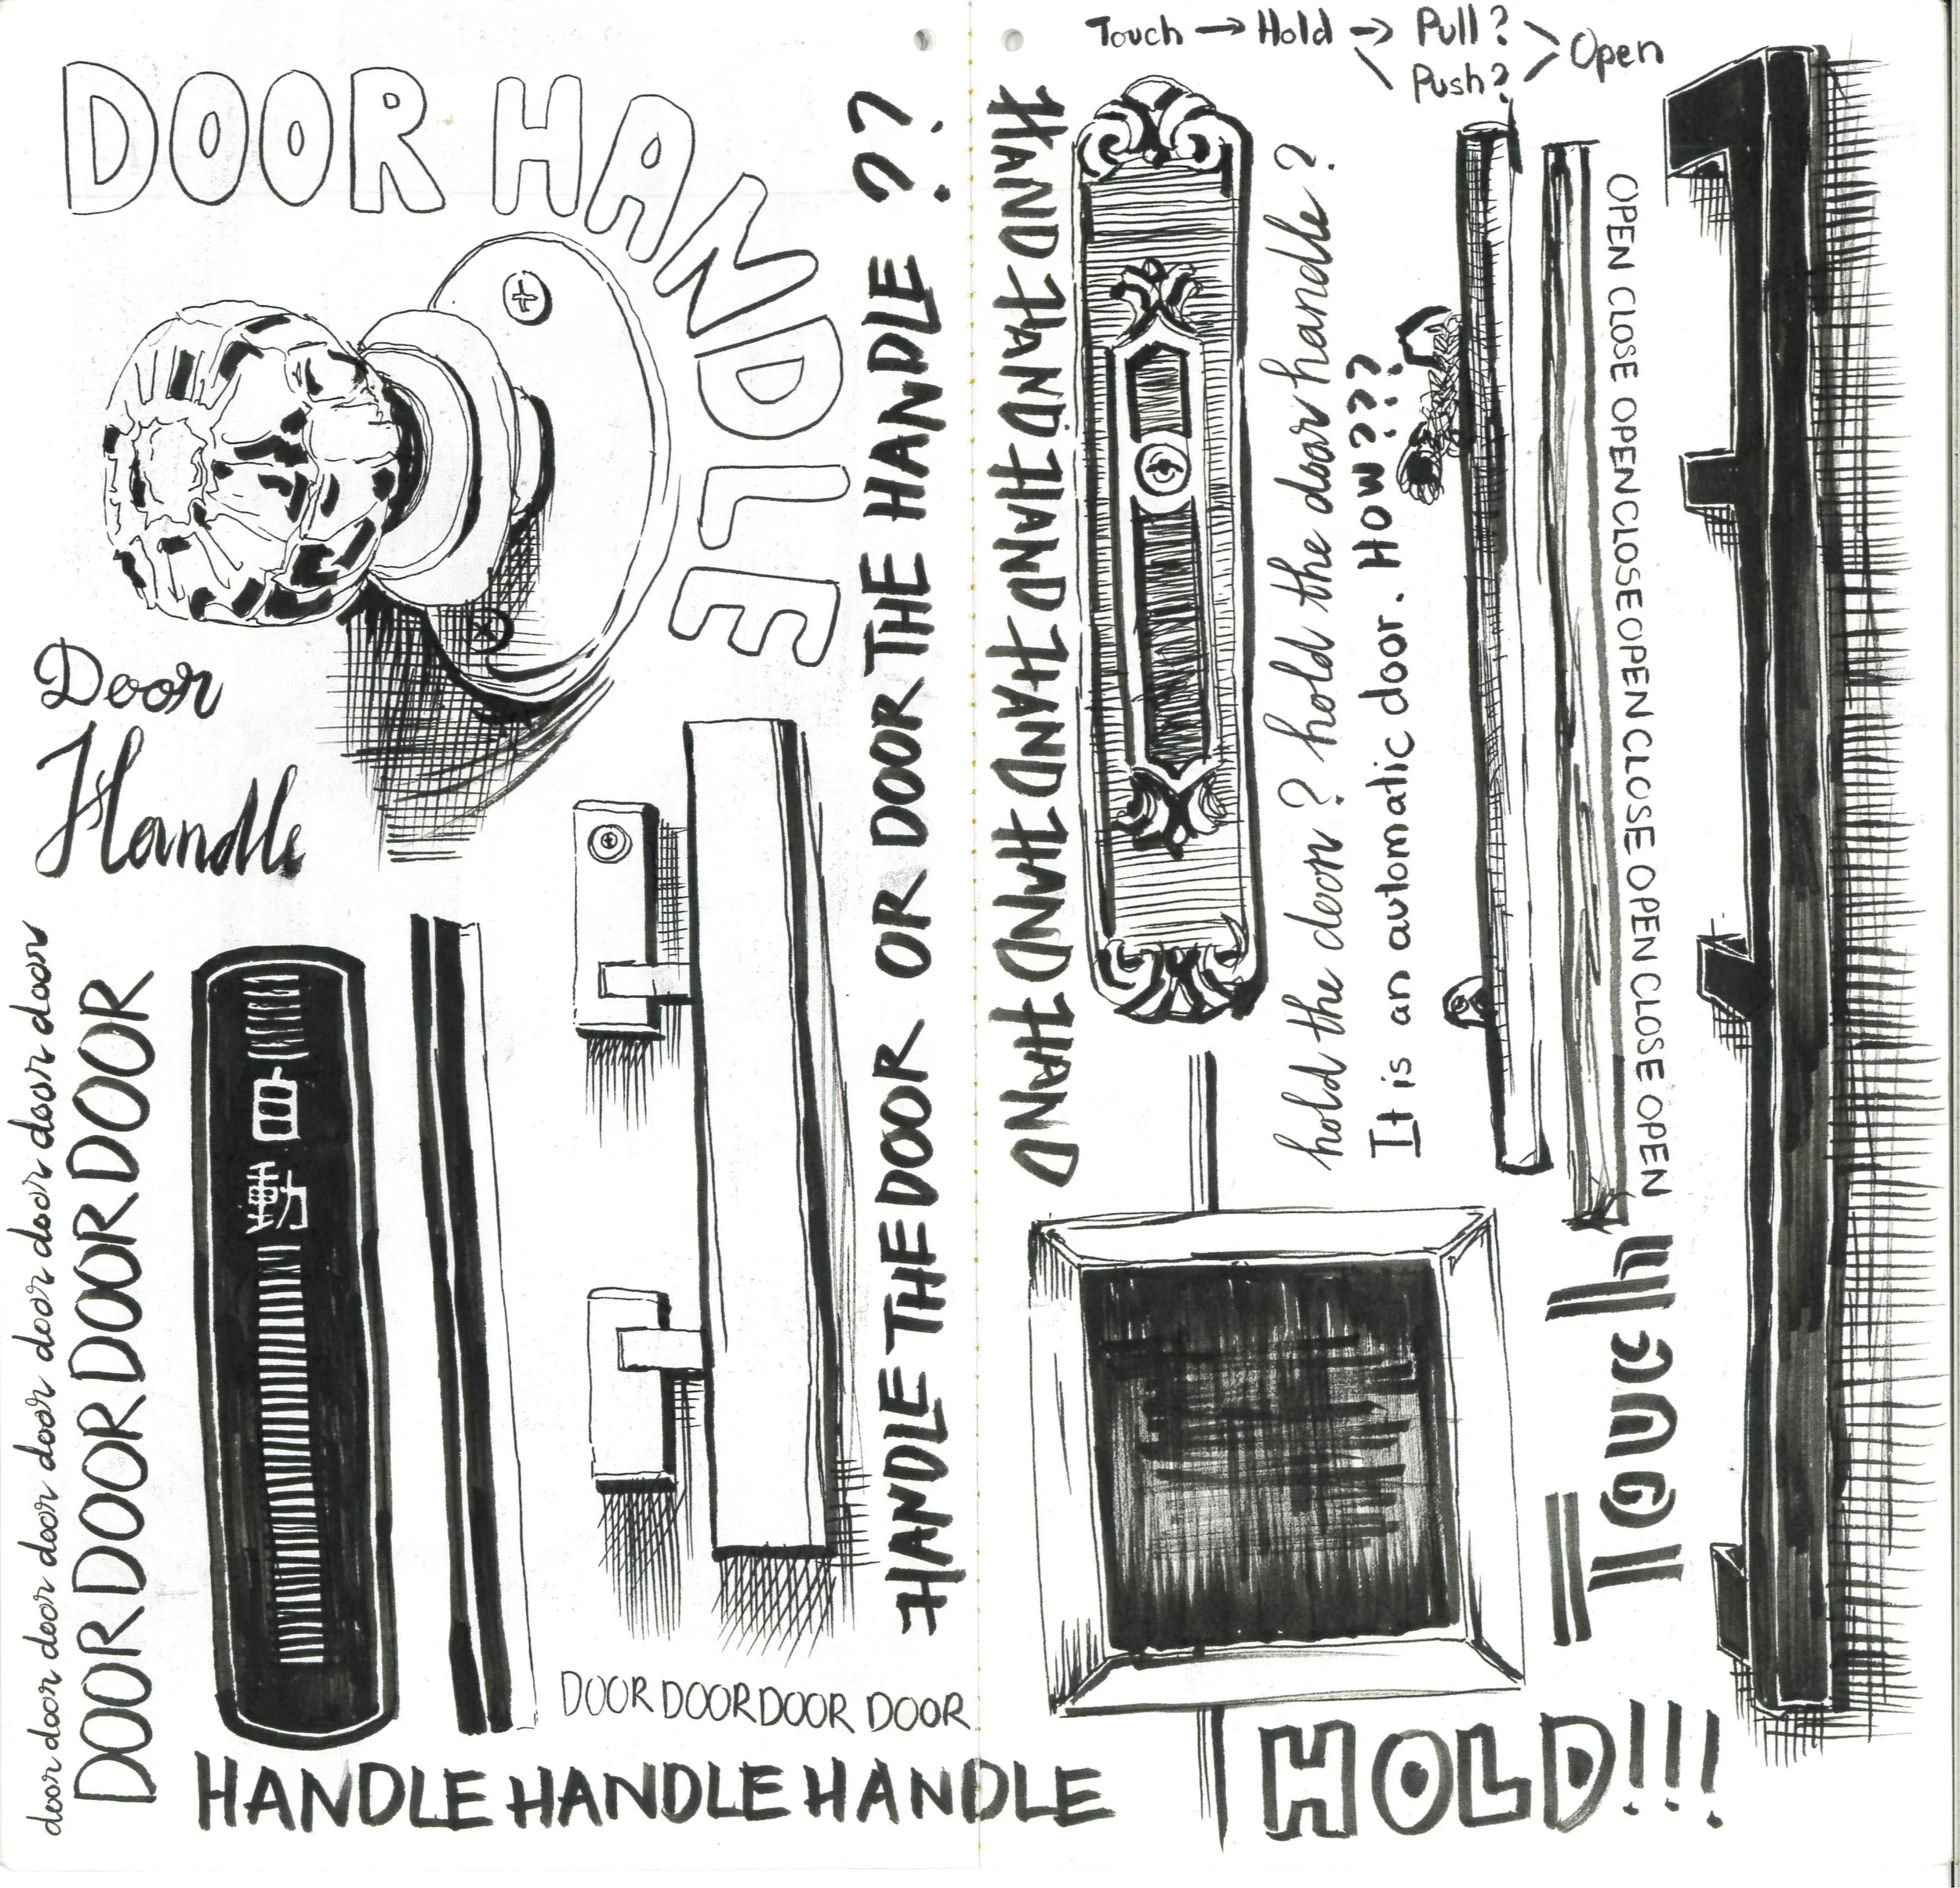 DOOR HANDLE
Door
Handle
door door door door door door door door door door door door
DOOR DOOR DOOR DOOR DOOR
自動
HANDLE THE DOOR OR DOOR THE HANDLE ??
DOOR DOOR DOOR DOOR
HANDLE HANDLE HANDLE
Touch → Hold → Pull? Push? > Open
HAND HAND HAND HAND HAND HAND
hold the door? hold the door handle?
It is an automatic door. How???
OPEN CLOSE OPEN CLOSE OPEN CLOSE OPEN CLOSE OPEN
Touch
HOLD!!!